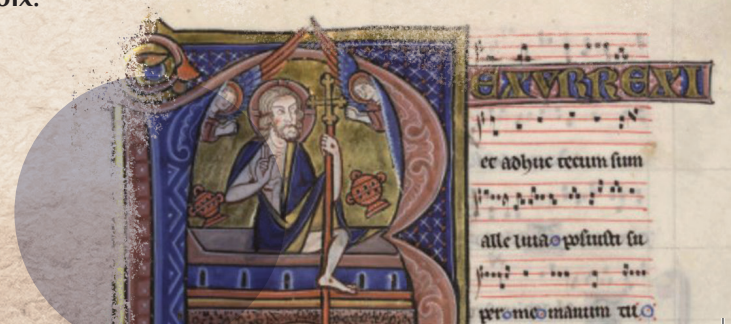 oix.
ESVRREXI
et adhuc tecum sum
alle luia posuisti su
per me manum tu